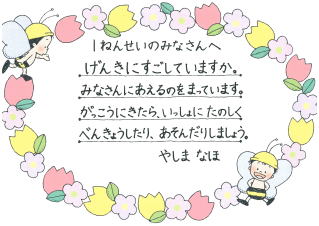 1ねんせいのみなさんへ
げんきにすごしていますか。
みなさんにあえるのをまっています。
がっこうにきたら、いっしょにたのしく
べんきょうしたり、あそんだりしましょう。
やしま なほ